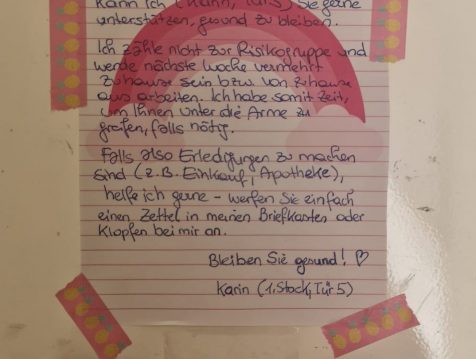 kann ich (Karin, Tür 5) Sie gerne
unterstützen, gesund zu bleiben.
Ich zähle nicht zur Risikogruppe und
werde nächste Woche vermehrt
zuhause sein bzw. von zuhause
aus arbeiten. Ich habe somit Zeit,
um Ihnen unter die Arme zu
greifen, falls nötig.
Falls also Erledigungen zu machen
sind (z.B. Einkauf, Apotheke),
helfe ich gerne - werfen Sie einfach
einen Zettel in meinen Briefkasten oder
klopfen bei mir an.
Bleiben Sie gesund! ♡
Karin (1. Stock, Tür 5)